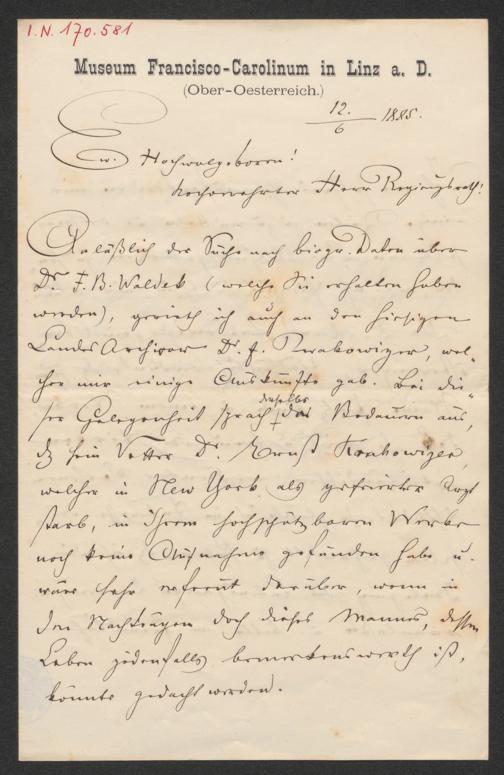 I.N. 170.581
Museum Francisco-Carolinum in Linz a. D.
(Ober-Oesterreich.)
12./6 1885.
Ew. Hochwolgeboren!
hochverehrter Herr Regierungsrath!
Anläßlich der Suche nach biogr. Daten über
Dr. F. B. Waldek (welche Sie erhalten haben
werden), gerieth ich auch an den hiesigen
Landes Archivar Dr. F. Krakowizer, wel-
cher mir einige Auskünfte gab. Bei die-
ser Gelegenheit sprach derselbe das Bedauern aus,
dß sein Vetter Dr. Ernst Krakowizer,
welcher in New York als gefeierter Arzt
starb, in Ihrem hochschätzbaren Werke
noch keine Aufnahme gefunden habe u.
wäre sehr erfreut darüber, wenn in
den Nachträgen doch dieses Mannes, dessen
Leben jedenfalls bemerkenswerth ist,
könnte gedacht werden.